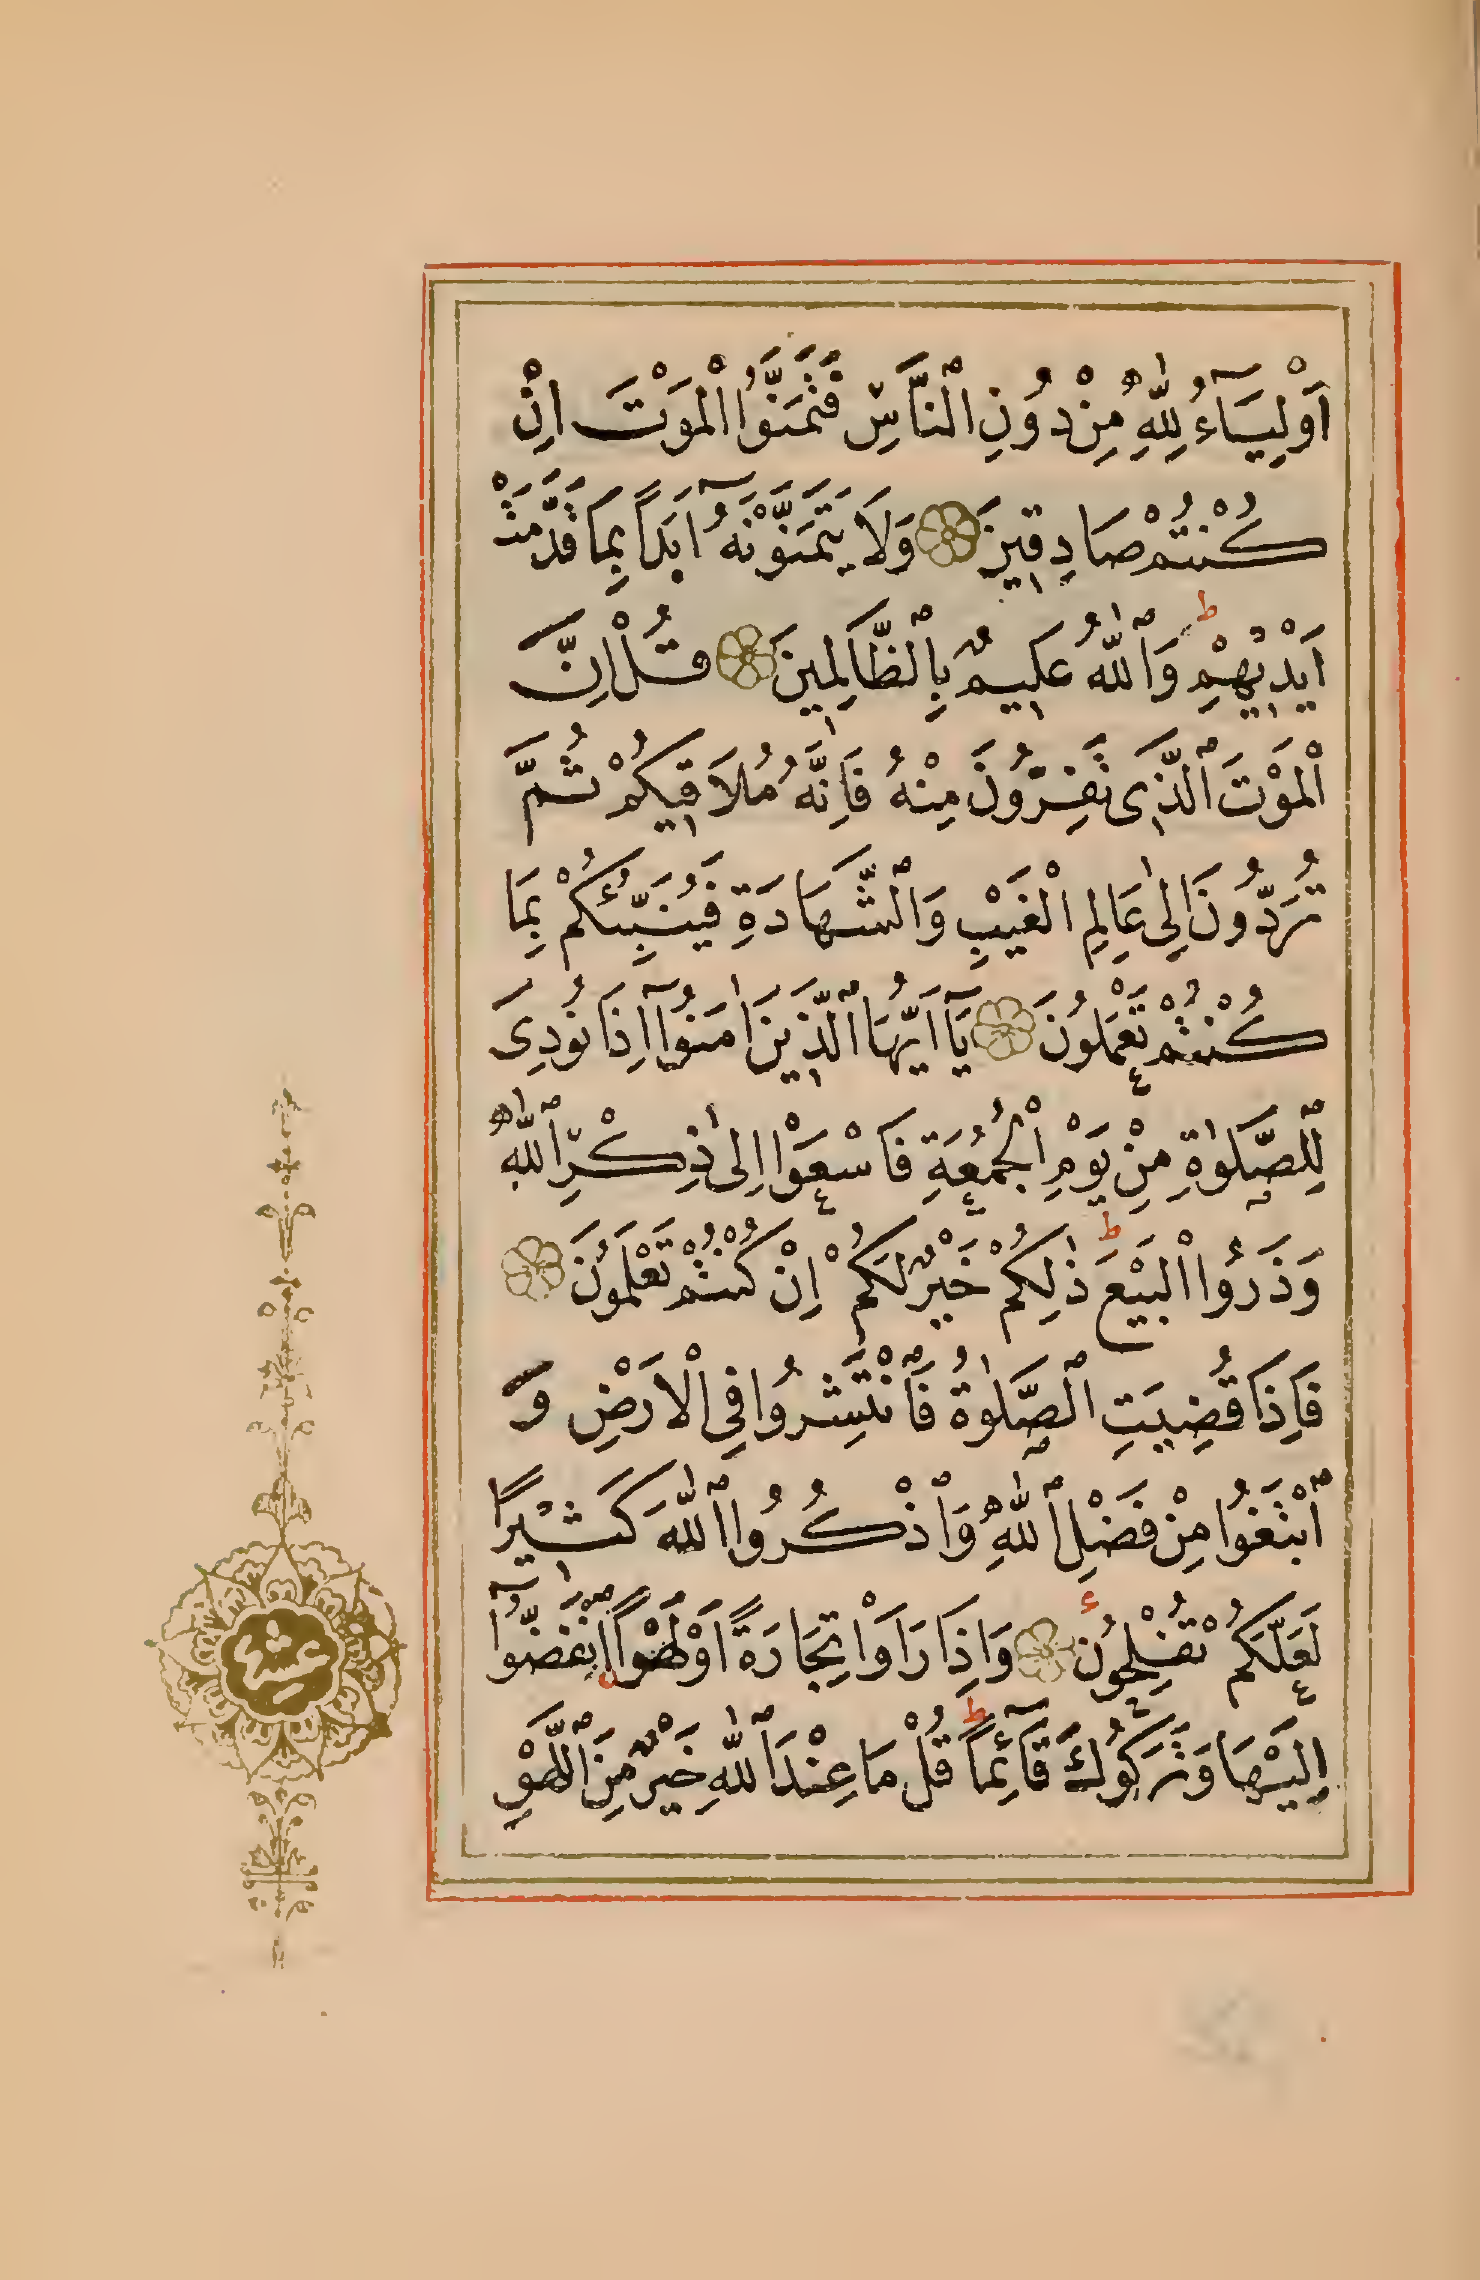 اَوْلِيَآءُ لِلّٰهِ مِنْ دُونِ النَّاسِ فَتَمَنَّوُا الْمَوْتَ اِنْ
كُنْتُمْ صَادِقِينَ وَلَا يَتَمَنَّوْنَهُٓ اَبَدًا بِمَا قَدَّمَتْ
اَيْدِيهِمْ ط وَٱللّٰهُ عَلِيمٌ بِٱلظَّالِمِينَ قُلْ اِنَّ
الْمَوْتَ ٱلَّذِى تَفِرُّونَ مِنْهُ فَاِنَّهُ مُلَاقِيكُمْ ثُمَّ
تُرَدُّونَ اِلٰى عَالِمِ الْغَيْبِ وَٱلشَّهَادَةِ فَيُنَبِّئُكُمْ بِمَا
كُنْتُمْ تَعْمَلُونَ يَٓا اَيُّهَا ٱلَّذِينَ اٰمَنُوٓا اِذَا نُودِىَ
لِلصَّلٰوةِ مِنْ يَوْمِ الْجُمُعَةِ فَاسْعَوْا اِلٰى ذِكْرِ ٱللّٰهِ
وَذَرُوا الْبَيْعَ ط ذٰلِكُمْ خَيْرٌ لَكُمْ اِنْ كُنْتُمْ تَعْلَمُونَ
فَاِذَا قُضِيَتِ ٱلصَّلٰوةُ فَٱنْتَشِرُوا فِى الْاَرْضِ وَ
ٱبْتَغُوا مِنْ فَضْلِ ٱللّٰهِ وَٱذْكُرُوا ٱللّٰهَ كَثِيرًا
لَعَلَّكُمْ تُفْلِحُونَ وَاِذَا رَاَوْا تِجَارَةً اَوْ لَهْوًا ٱنْفَضُّوٓا
اِلَيْهَا وَتَرَكُوكَ قَآئِمًا ط قُلْ مَا عِنْدَ ٱللّٰهِ خَيْرٌ مِنَ ٱللَّهْوِ